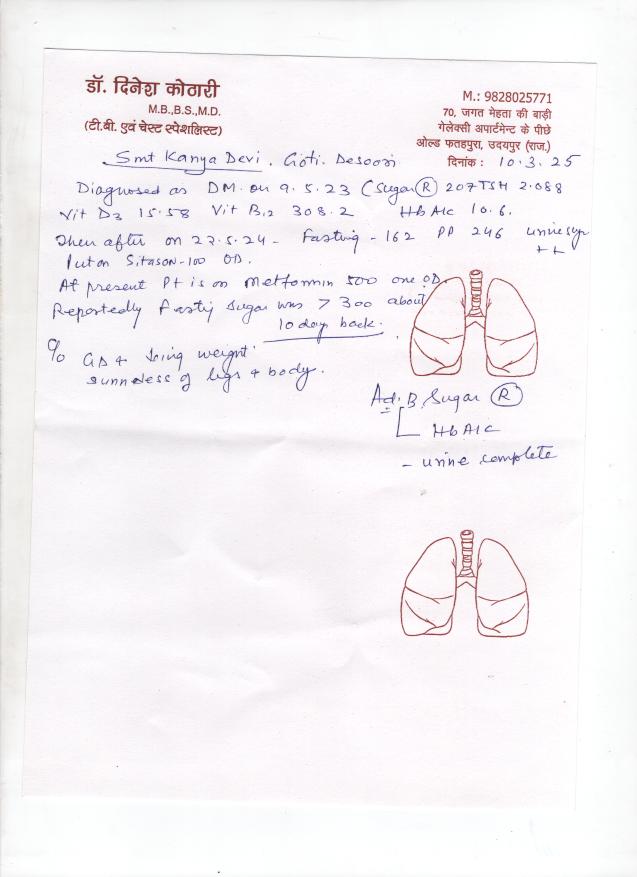 डॉ. दिनेश कोठारी
M.B.,B.S.,M.D.
(टी.बी. एवं चेस्ट स्पेशलिस्ट)
M.: 9828025771
70, जगत मेहता की बाड़ी
गेलेक्सी अपार्टमेन्ट के पीछे
ओल्ड फतहपुरा, उदयपुर (राज.)
दिनांक : 10.3.25
Smt Kanya Devi. Goti. Desoori
Diagnosed as DM. on 9.5.23 (Sugar (R) 207 TSH 2.088
Vit D3 15.58 Vit B12 308.2 HbA1c 10.6.
Then after on 27.5.24 - Fasting - 162 PP 246 urine
++
Put on Sitason-100 OD.
At present Pt is on Metformin 500 one OD.
Reportedly Fasting Sugar was > 300 about
10 days back.
C/o weight
of legs + body.
Ad. B. Sugar (R)
HbA1c
- urine complete